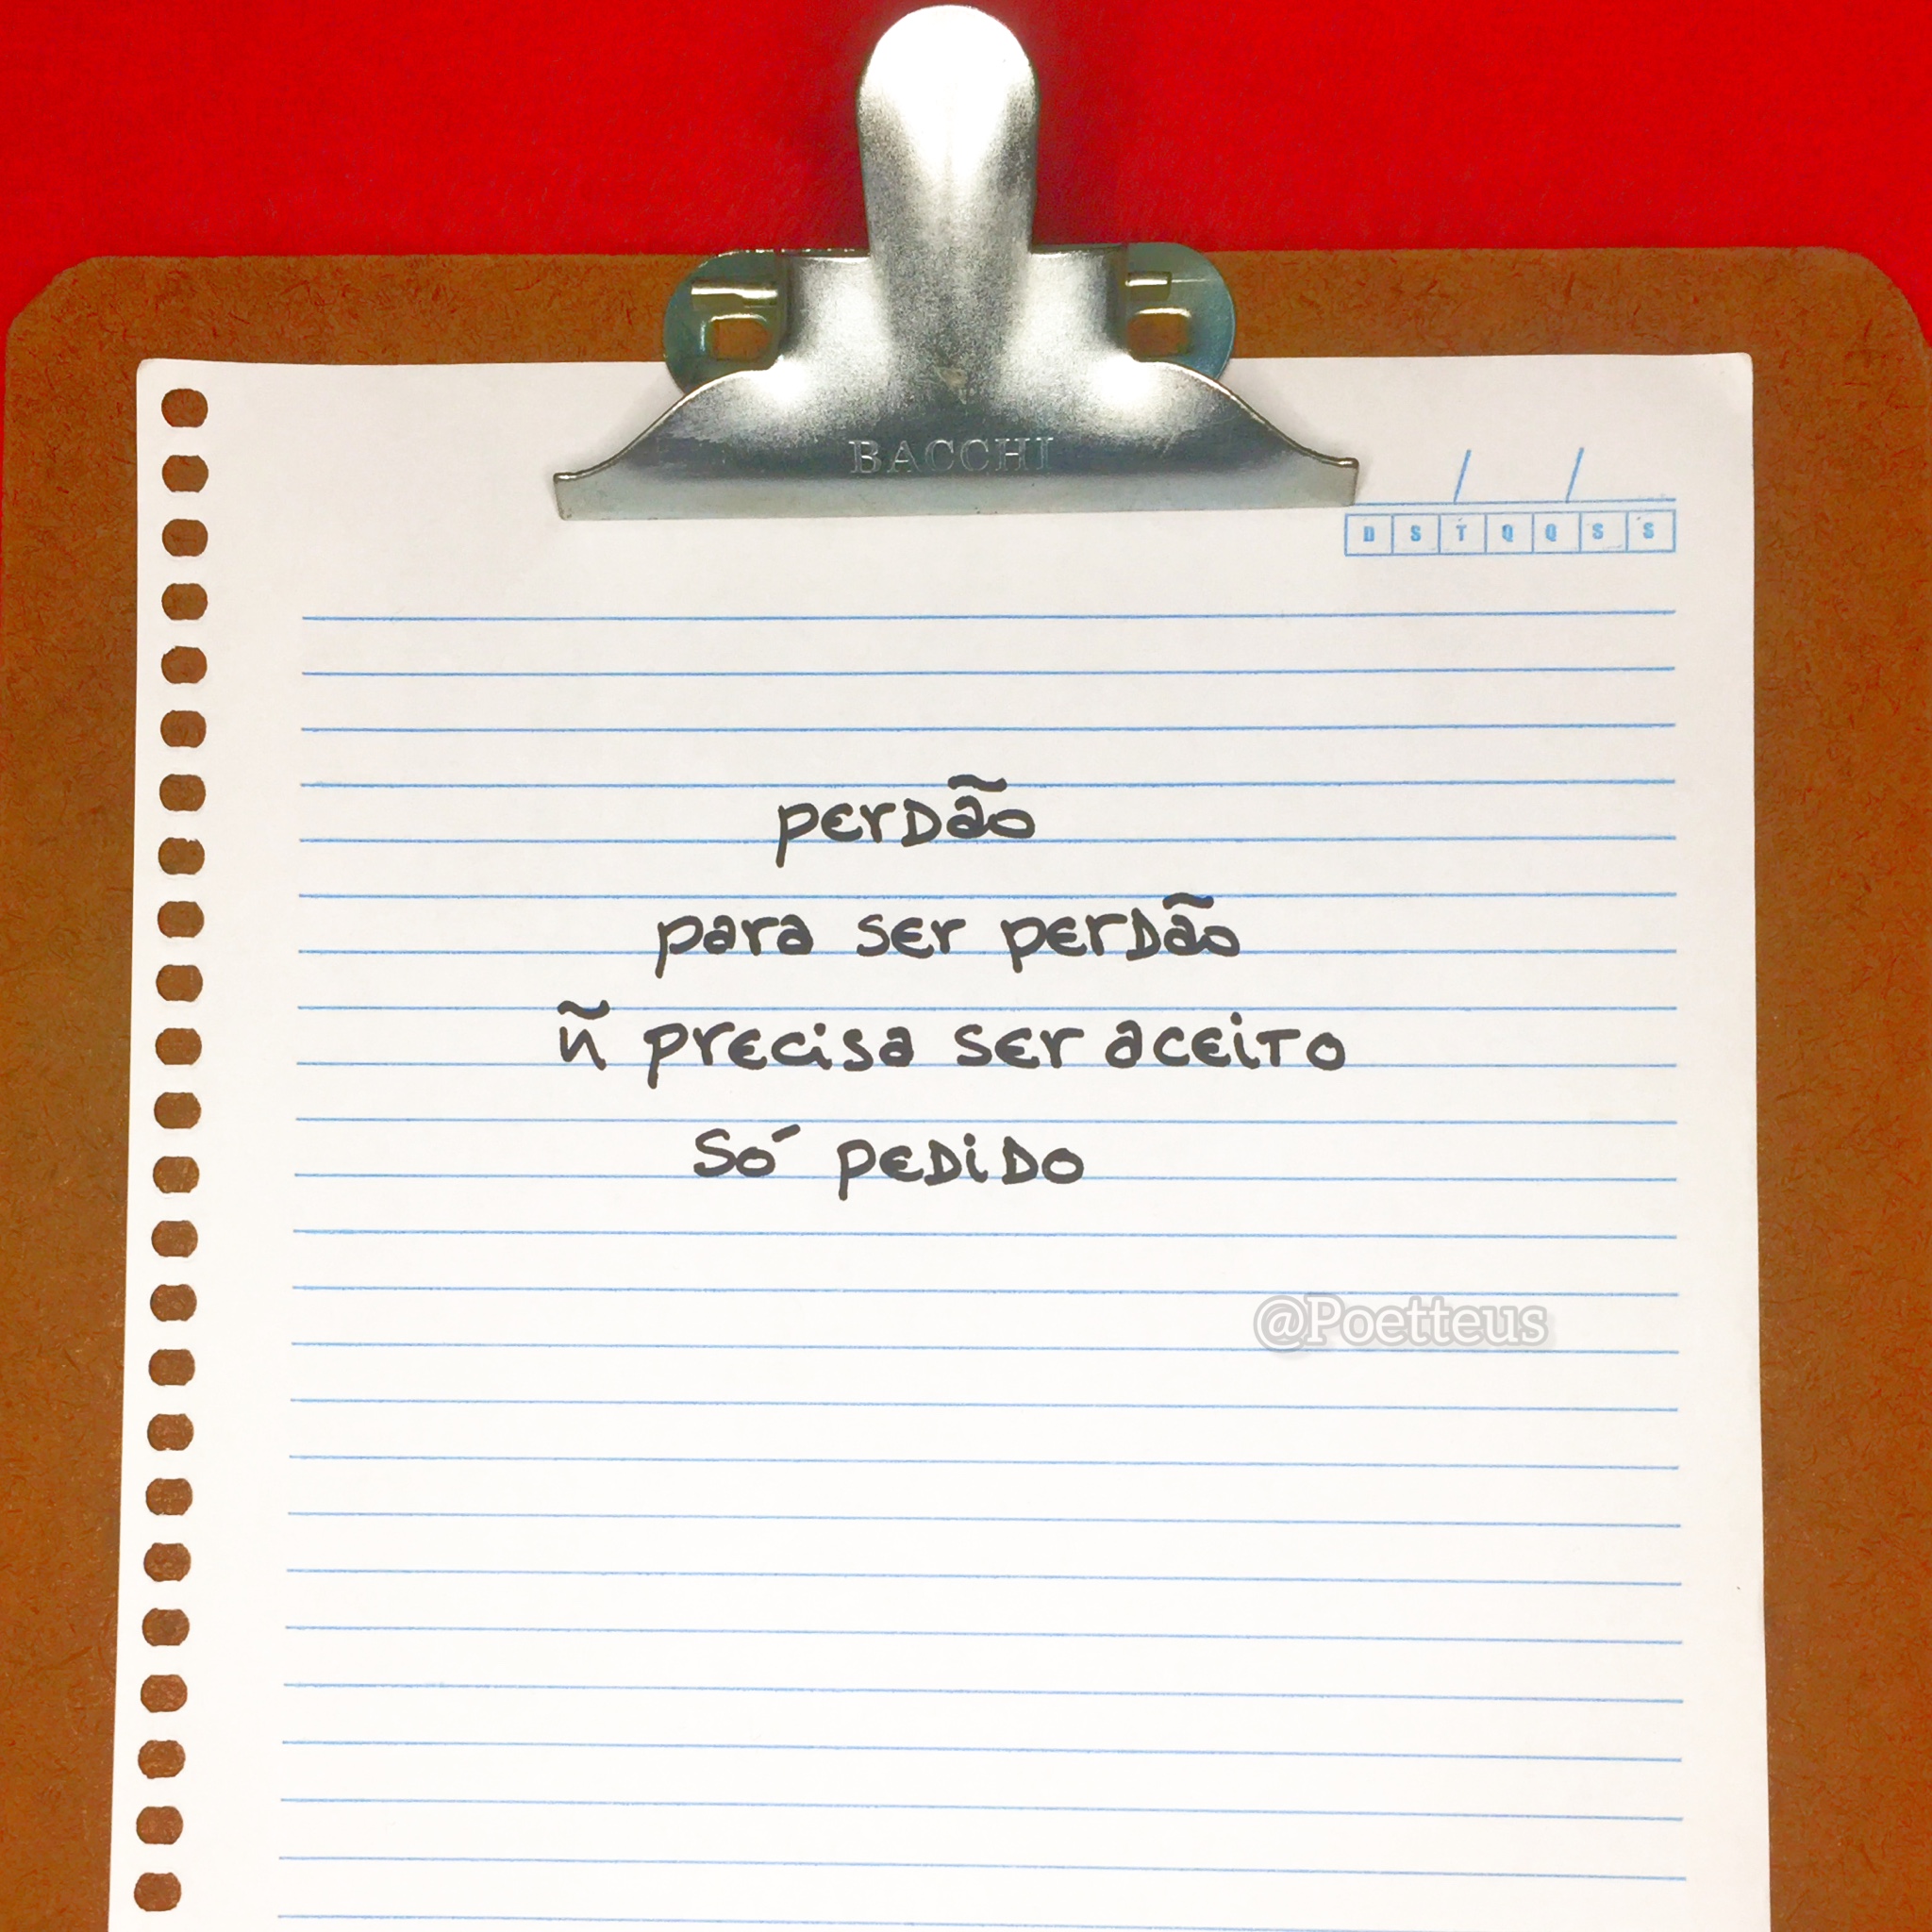 BACCHI
/ /
D S T Q Q S S
perdão
para ser perdão
ñ precisa ser aceito
só pedido
@Poetteus